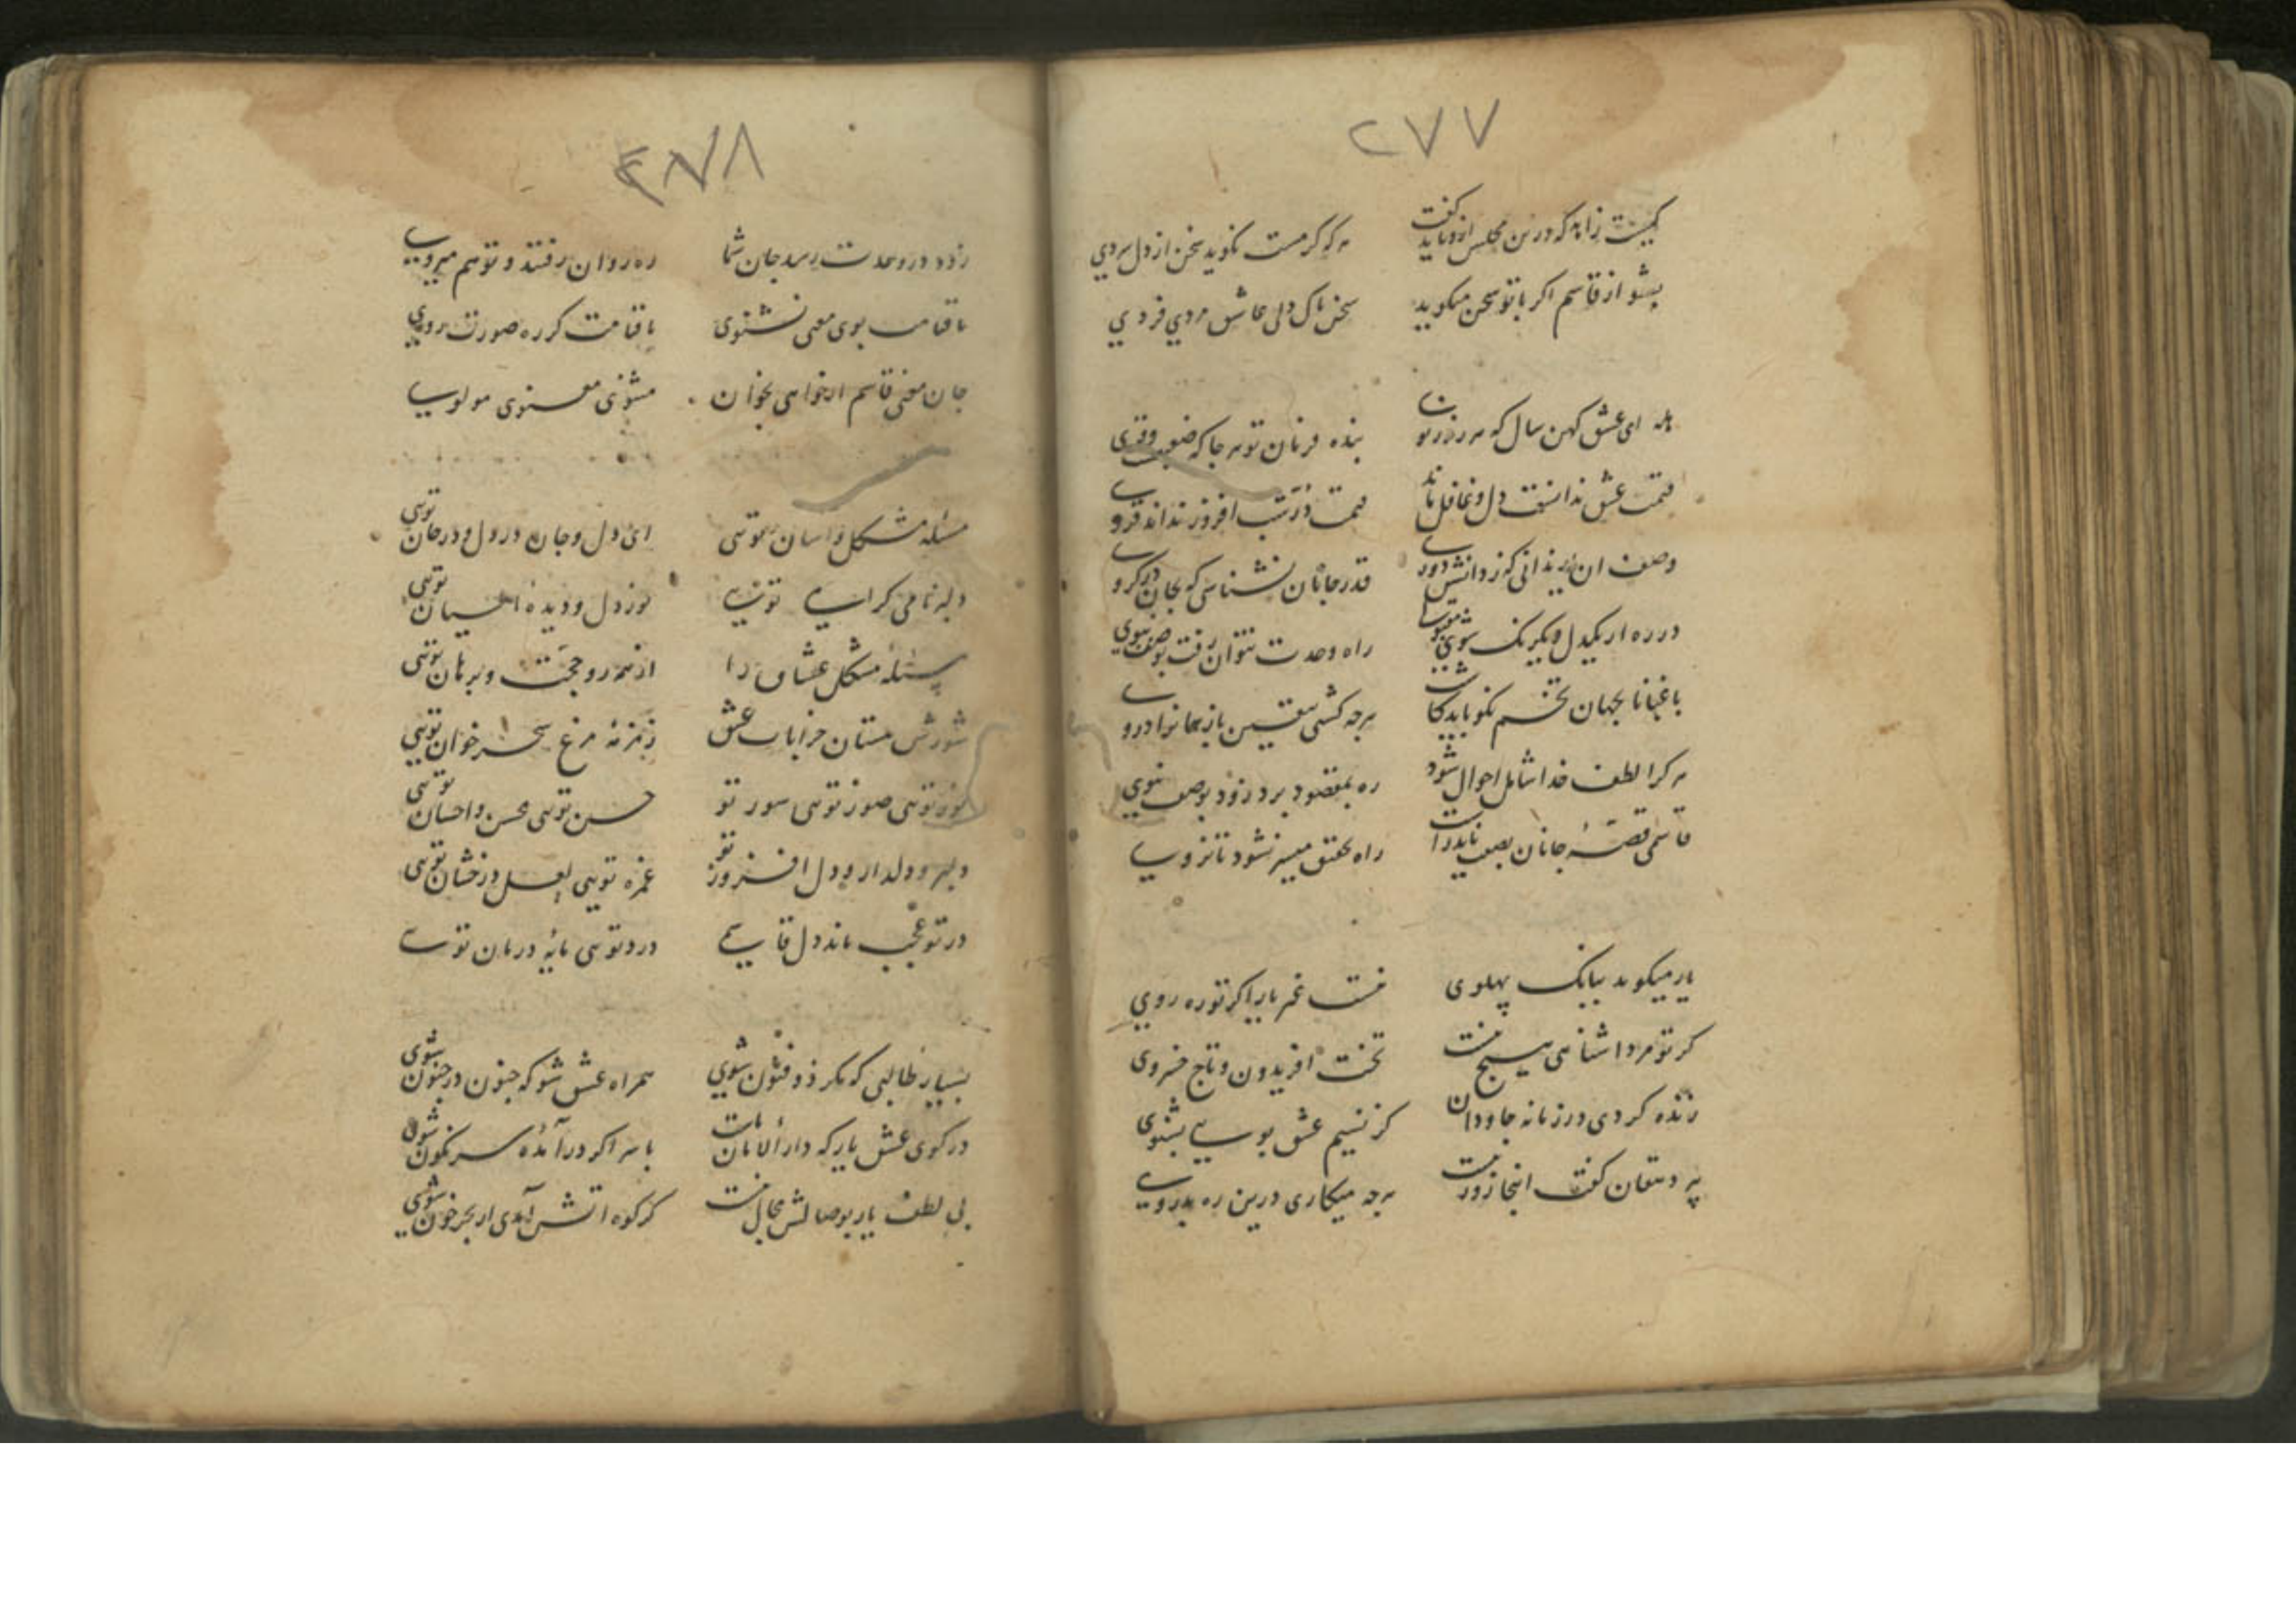 ۲۷۷
کیست زاهد که درین مجلس ازو باید گفت هر که گرمست نگوید سخن از دل سردی
بشنو از قاسم اگر با تو سخن میگوید سخن پاک دلی عاشق مردی فردی
هله ای عشق کهن سال که هر روز نوی بنده فرمان تو هر جا که ضعیف و قوی
قیمت عشق ندانست دل و غافل ماند قیمت در شب افروز نداند قروی
وصف ان یار ندانی که ز دانش دوری قدر جانان نشناسی که بجان در گروی
در ره ار یکدل و یکرنگ شوی راه وحدت نتوان رفت بوصف ثنوی
باغبانا بجهان تخم نکو باید کاشت هرچه کشتی بیقین باز همانرا دروی
هر کرا لطف خدا شامل احوال شود ره بمقصود برد زود بوصف نبوی
قاسمی قصه جانان بصفت ناید راست راه تحقیق میسر نشود تا نروی
یار میگوید ببانک پهلوی نیست غم یارا اگر تو ره روی
گر تو مرد اشنایی هیچ نیست تخت افریدون و تاج خسروی
زنده گردی در زمانه جاودان گر نسیم عشق بویی بشنوی
پیر دهقان گفت اینجا زور نیست هرچه میکاری درین ره بدروی
۲۷۸
زود در وحدت رسد جان شما ره روان رفتند و تو هم میروی
تا قیامت بوی معنی نشنوی تا قیامت گر ره صورت روی
جان معنی قاسم ار خواهی بخوان مثنوی معنوی مولوی
مسئله مشکل و اسان تویی ای دل و جان در دل و در جان تویی
دلبر نامی گرامی تویی نور دل و دیده انسان تویی
مسئله مشکل عشاق را از همه رو حجت و برهان تویی
شورش مستان خرابات عشق زمزمه مرغ سحر خوان تویی
نور تویی صور تویی سور تو حسن تویی محسن و احسان تویی
دلبر و دلدار و دل افروز تو غمزه تویی لعل درخشان تویی
در تو عجب ماند دل قاسمی درد تویی مایه درمان تویی
بسیار طالبی که مگر ذوفنون شوی همراه عشق شو که جنون در جنون شوی
در کوی عشق یار که دار الامان ماست با سر اگر در آمده سرنگون شوی
بی لطف یار بوصالش مجال نیست گر کوه اتش آیی ار بحر خون شوی